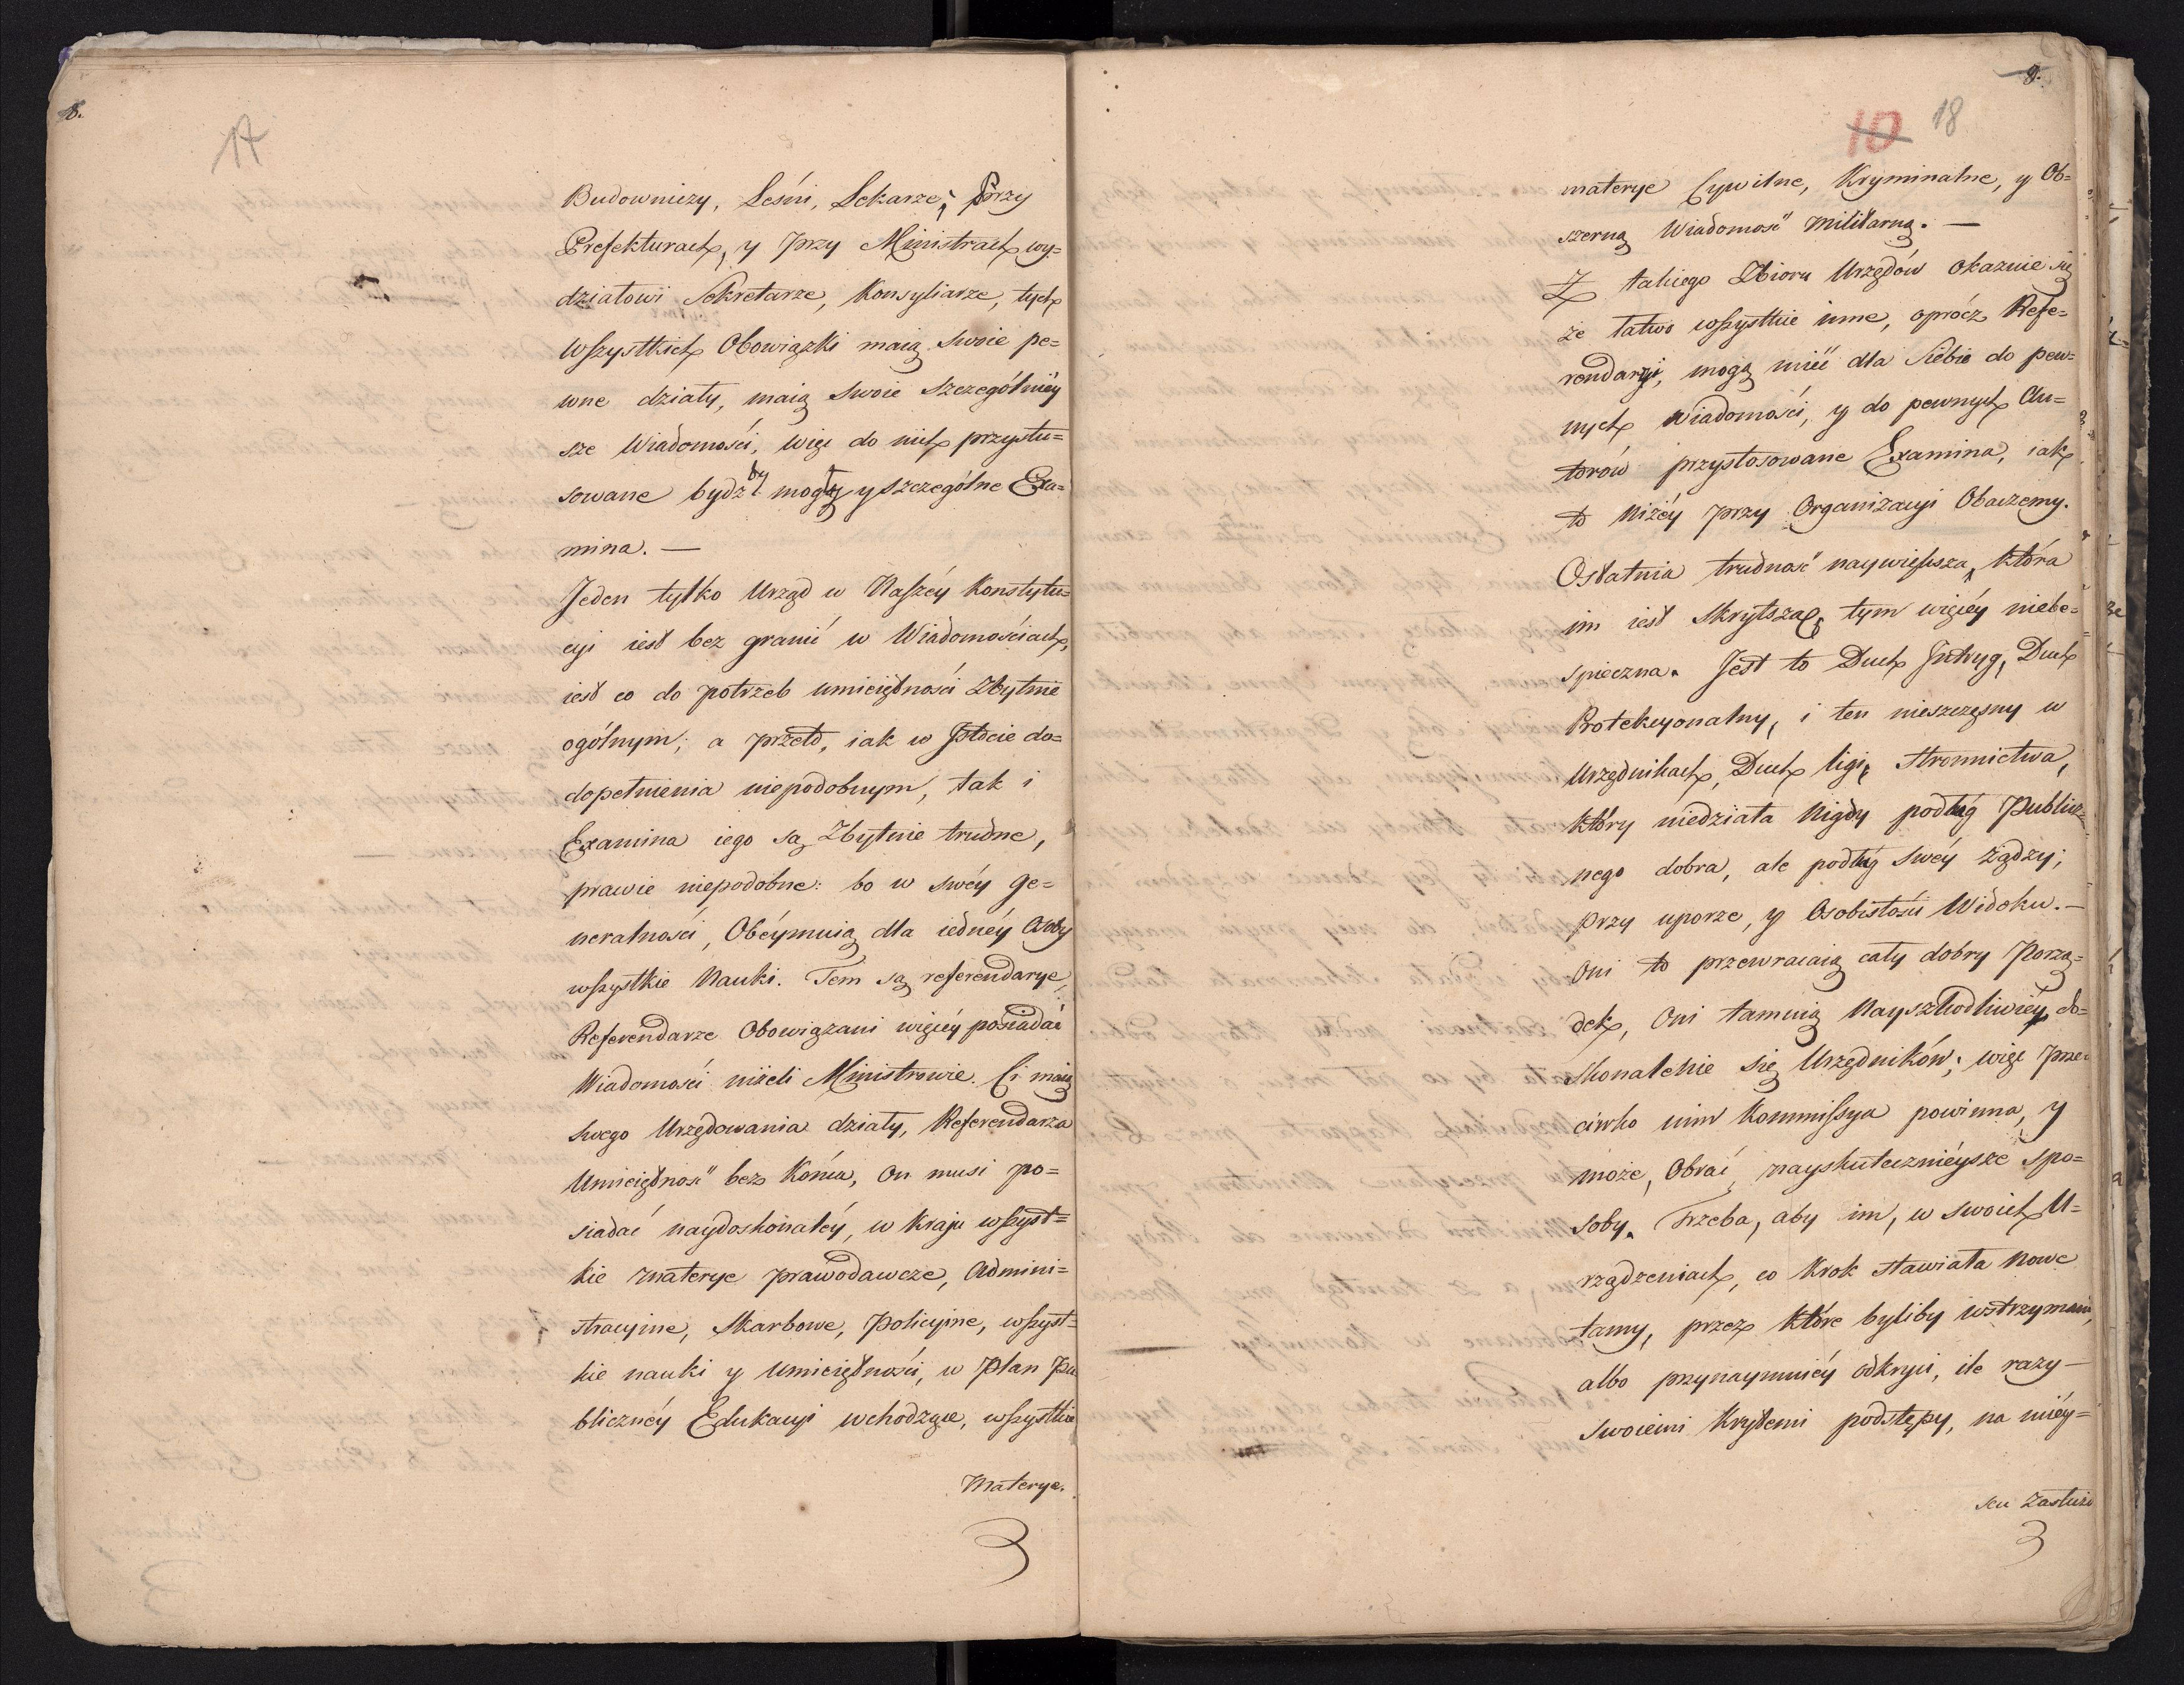 8.
17
Budowniczy, Leśni, Lekarze, Przy
Prefekturach, y przy Ministrach wy=
działowi Sekretarze, Konsyliarze, tych
wszystkich Obowiązki maią swoie pe=
wne działy, maią swoie szczególniéy
sze Wiadomości, więc do nich przystu=
sowane bydź by mogły y szczególne Exa=
mina. —
Jeden tylko Urząd w Naszéy Konstytu=
cyi iest bez granić w Wiadomościach,
iest co do potrzeb umiciętności Zbytnie
ogólnym; a przeto, iak w Jstocie do=
dopełnienia niepodobnym, tak i
Examina iego są Zbytnie trudne,
prawie niepodobne: bo w swéy ge=
neralności, Obéymuią dla iednéy Osoby
wszystkie Nauki. Tem są referendarye,
Referendarze Obowiązani więcéy posiadać
Wiadomości niżeli Ministrowie. Ci maią
swego Urzędowania działy, Referendarza
Umiciętność bez Końca, On musi po=
siadać naydoskonaléy, w Kraju wszyst=
kie materye prawodawcze, Admini=
stracyine, Skarbowe, Policyine, wszyst=
kie nauki y Umiciętności, w Plan Pu
blicznéy Edukacyi wchodzące, wszystkie
Materye.
3
9.
10 18
materye Cywilne, Kryminalne, y Ob=
szerną Wiadomość Militarną. —
Z takiego Zbioru Urzędów okazuie się
że łatwo wszystkie inne, oprócz Refe=
rendaryi, mogą mieć dla Siebie do pew=
nych Wiadomości, y do pewnych Au=
torów przystosowane Examina, iak
to niżéy przy Organizacyi Obaczemy.
Ostatnia trudność naywiększa, która
im iest skrytsza, tym więcéy niebe=
spieczna. Jest to Duch Jntryg, Duch
Protekcyonalny, i ten nieszczęsny w
Urzędnikach, Duch ligi, stronnictwa,
który niedziała Nigdy podług Publicz=
nego dobra, ale podług swéy żądzy;
przy uporze, y Osobistości Widoku. —
Oni to przewracaią cały dobry Porzą=
dek, Oni tamuią Nayszkodliwiéy do=
skonalenie się Urzędników; więc prze
ciwko nim Kommissya powinna, y
może, Obrać, nayskutecznieysze spo=
soby. Trzeba, aby im, w swoich U=
rządzeniach, co Krok stawiała Nowe
tamy, przez które byliby wstrzymani,
albo przynaymniéy odkryci, ile razy —
swoiemi Krytemi podstępy, na miéy=
scu Zasłużo
3